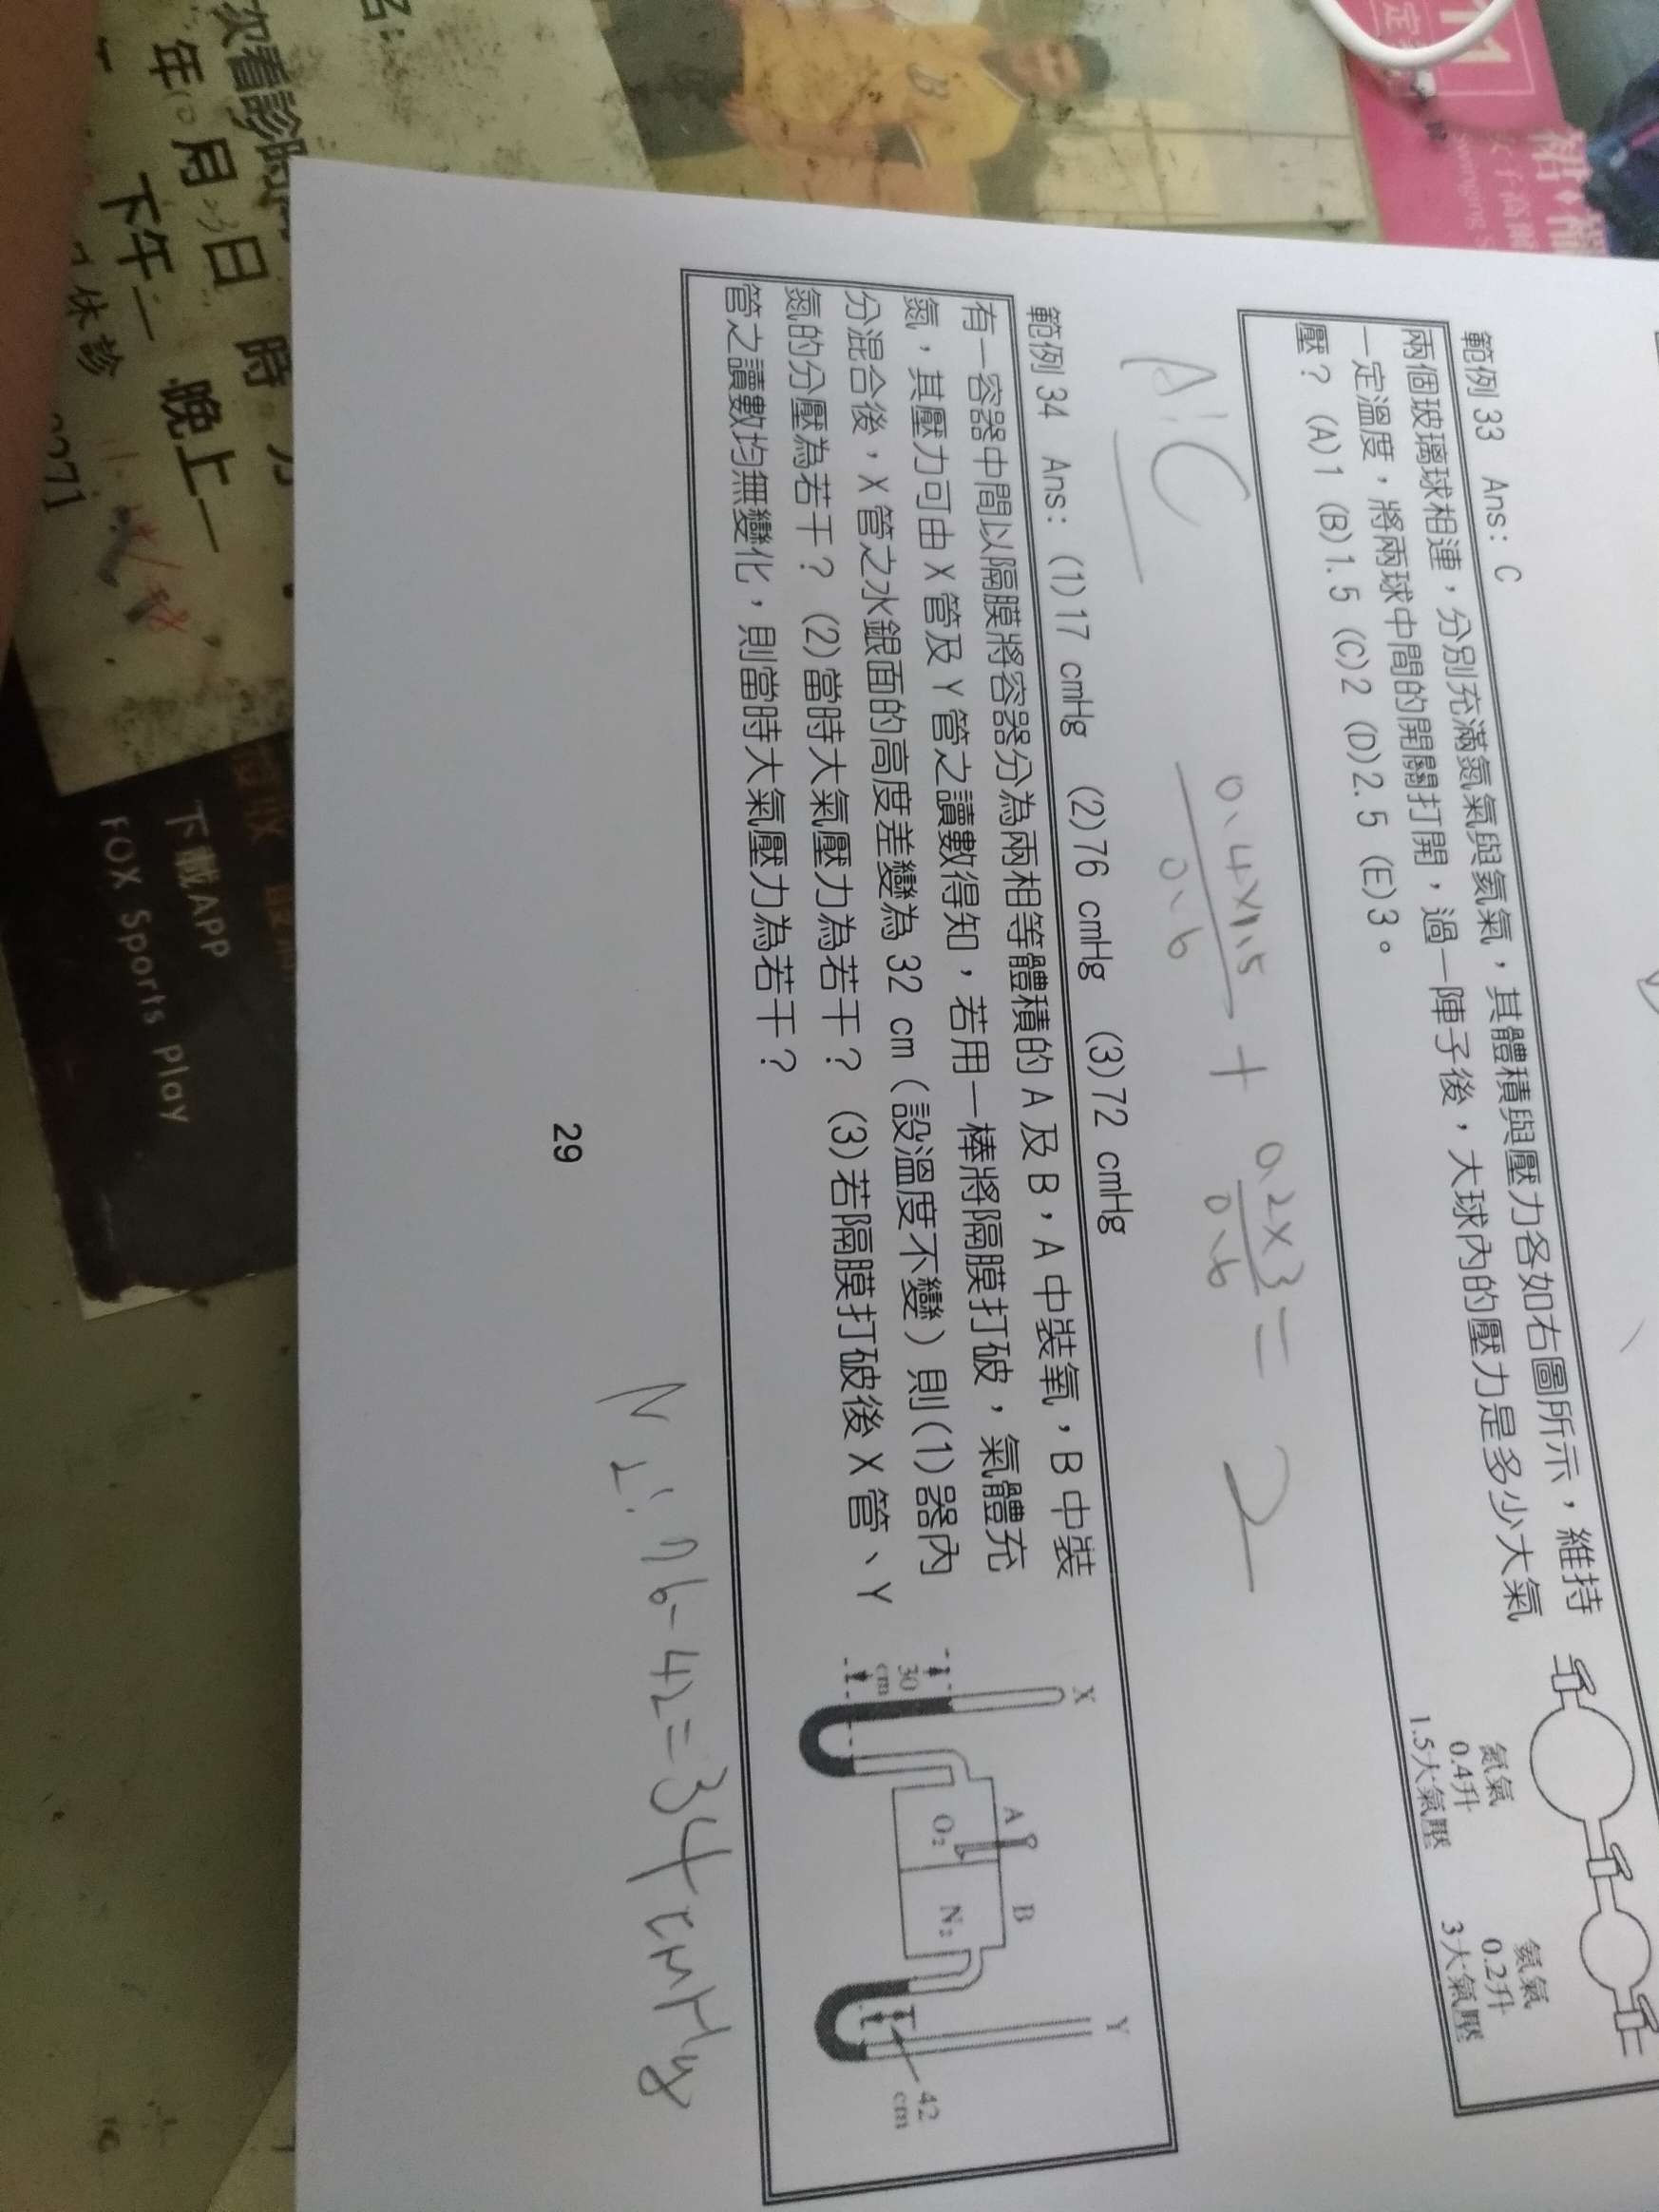 範例 33 Ans: C
兩個玻璃球相連，分別充滿氮氣與氦氣，其體積與壓力各如右圖所示，維持
一定溫度，將兩球中間的開關打開，過一陣子後，大球內的壓力是多少大氣
壓？ (A)1 (B)1.5 (C)2 (D)2.5 (E)3。
氮氣
0.4升
1.5大氣壓
氦氣
0.2升
3大氣壓
A:C
0.4×1.5 / 0.6 + 0.2×3 / 0.6 = 2
範例 34 Ans: (1)17 cmHg (2)76 cmHg (3)72 cmHg
有一容器中間以隔膜將容器分為兩相等體積的 A 及 B，A 中裝氧，B 中裝
氮，其壓力可由 X 管及 Y 管之讀數得知，若用一棒將隔膜打破，氣體充
分混合後，X 管之水銀面的高度差變為 32 cm（設溫度不變）則(1)器內
氮的分壓為若干？ (2)當時大氣壓力為若干？ (3)若隔膜打破後 X 管、Y
管之讀數均無變化，則當時大氣壓力為若干？
X
30
cm
A
O₂
B
N₂
Y
42
cm
N₂: 76-42=34 cmHg
29
年10月 日 時 分
下午 晚上
休診
下載APP
FOX Sports Play
B
11